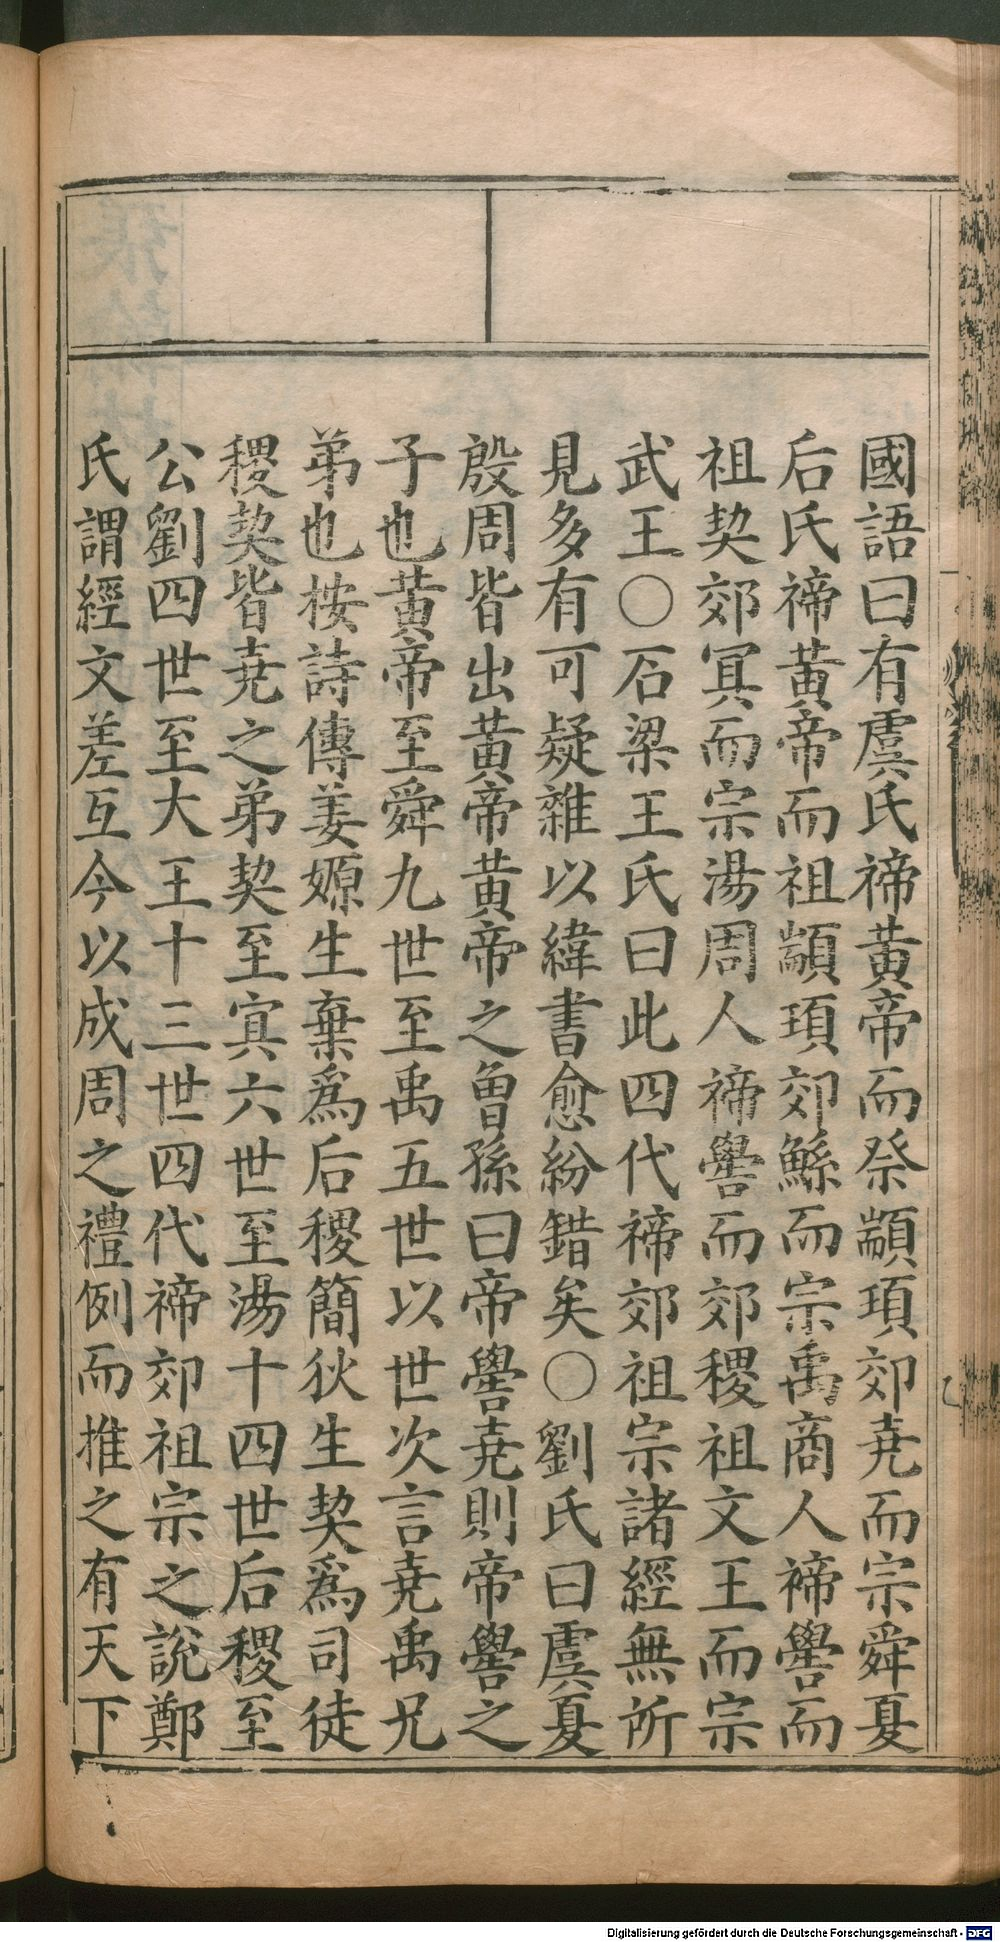 國語曰有虞氏禘黃帝而祭顓頊郊尭而宗舜夏
后氏禘黃帝而祖顓頊郊鯀而宗禹商人禘嚳而
祖契郊冥而宗湯周人禘嚳而郊稷祖文王而宗
武王○石梁王氏曰此四代禘郊祖宗諸經無所
見多有可疑雜以緯書愈紛錯矣○劉氏曰虞夏
殷周皆出黃帝黃帝之曾孫曰帝嚳尭則帝嚳之
子也黃帝至舜九世至禹五世以世次言尭禹兄
弟也按詩傳姜嫄生棄爲后稷簡狄生契爲司徒
稷契皆尭之弟契至冥六世至湯十四世后稷至
公劉四世至大王十三世四代禘郊祖宗之說鄭
氏謂經文差互今以成周之禮例而推之有天下
Digitalisierung gefördert durch die Deutsche Forschungsgemeinschaft - DFG